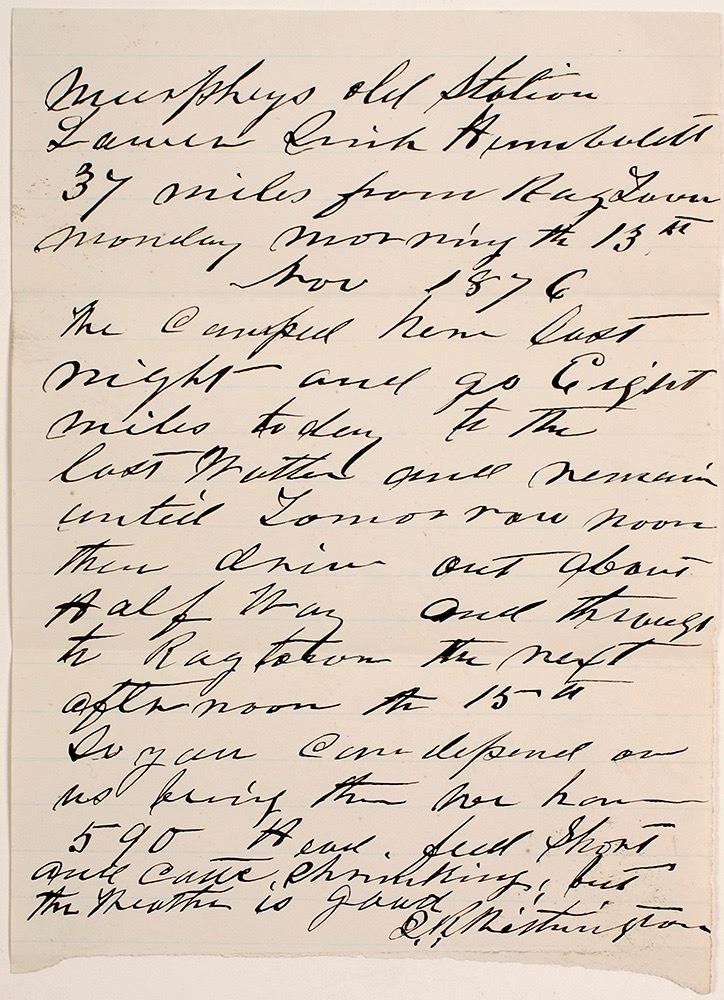 Murpheys old Station
Lower Sink Humboldt
37 miles from RagTown
monday morning th 13th
Nov 1876
We Camped here last
night and go Eight
miles today to the
last Watter and remain
until Tomorrow noon
then drive out about
Half Way and through
to Ragtown the next
afternoon th 15th
So you can depend on
us being then we have
590 Head. feed Short
and Cattle Shrinking, but
the Weather is good
Withington